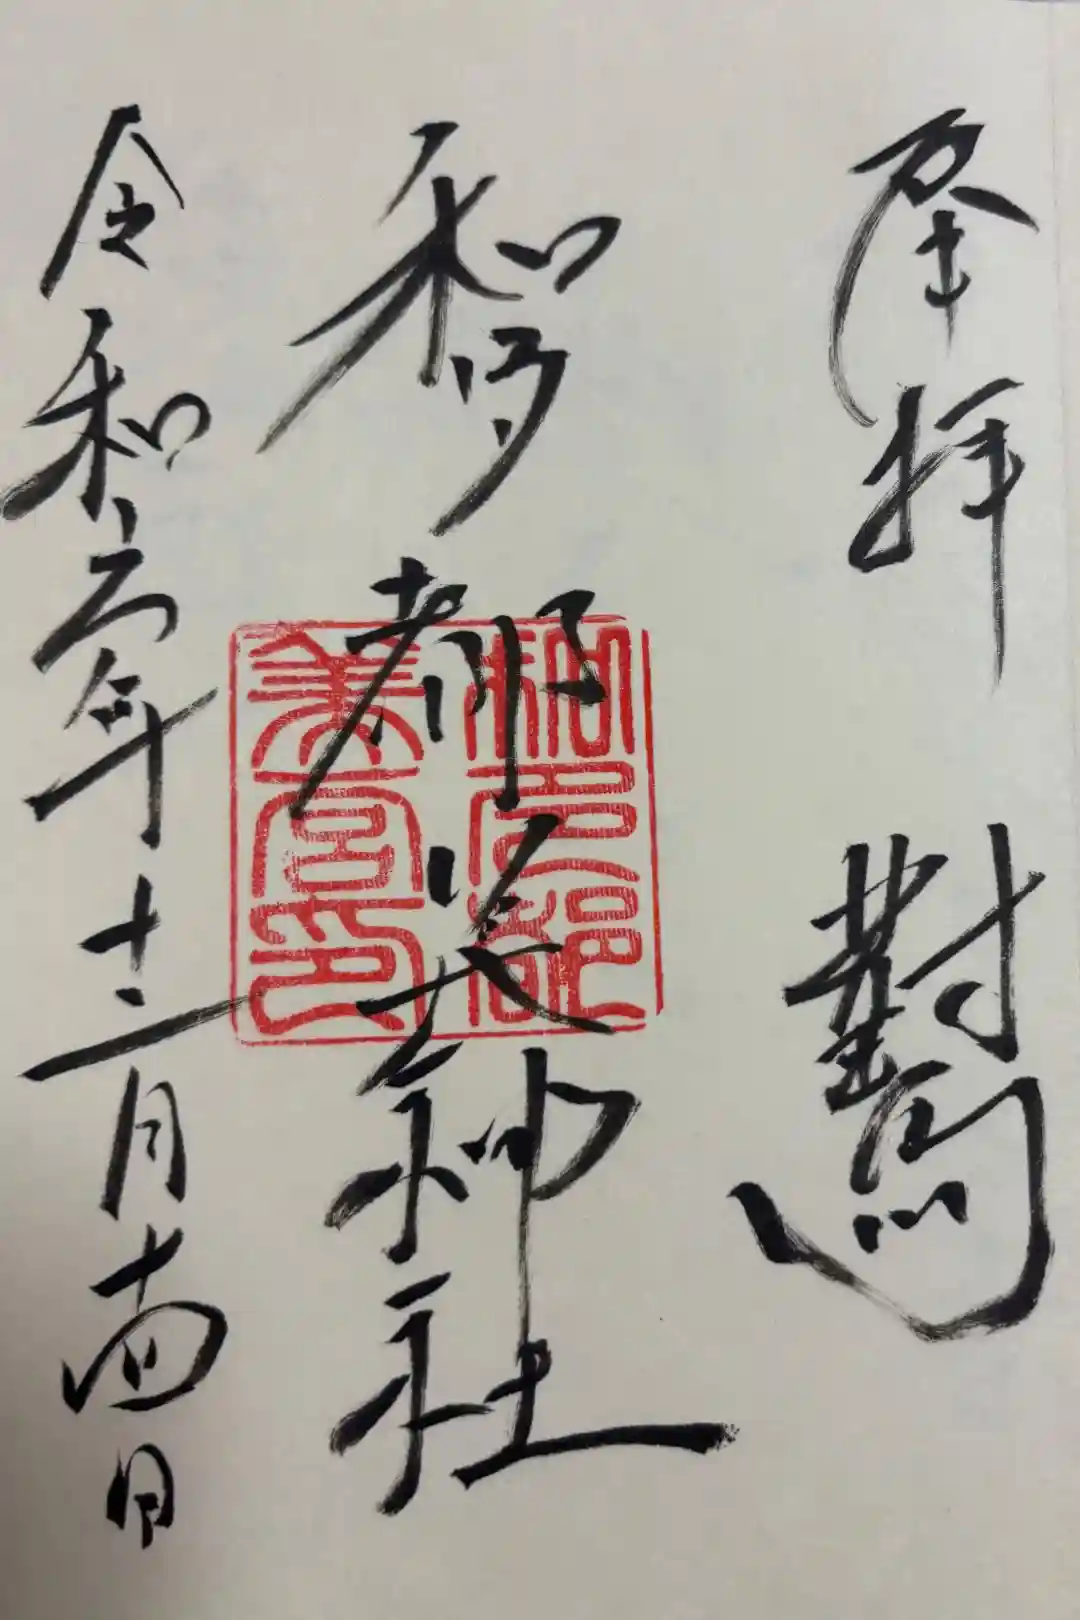 奉拝　對馬
和多都美神社
令和六年十二月十四日
和多都
美宮印